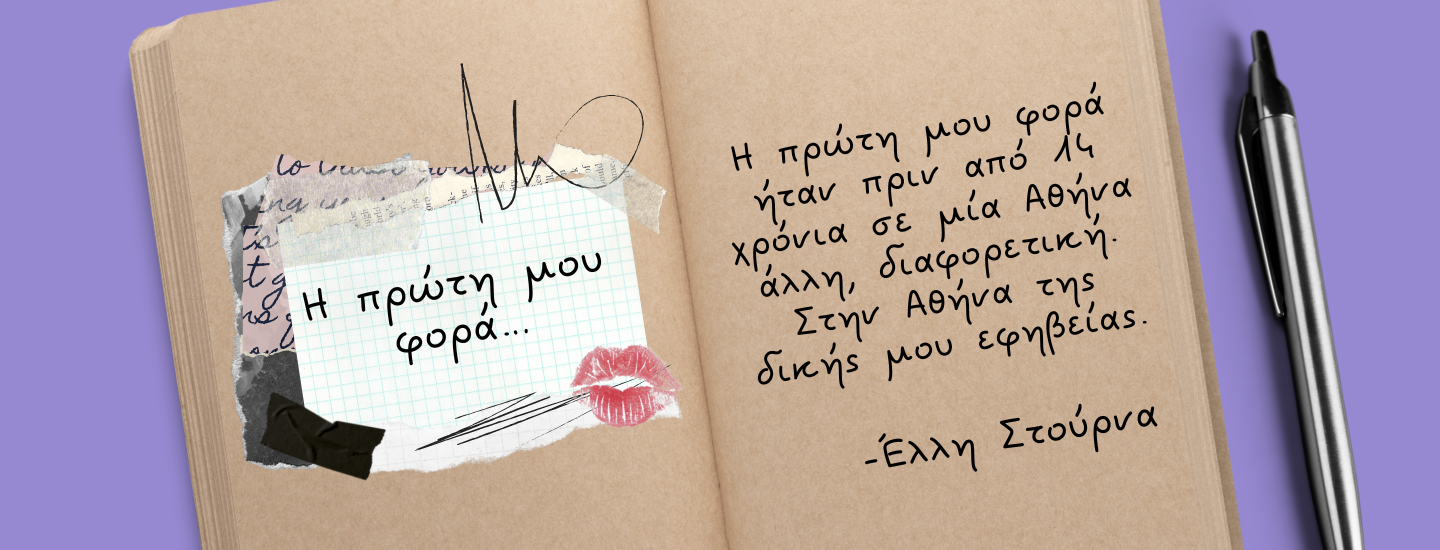 Η πρώτη μου
φορά...
Η πρώτη μου φορά
ήταν πριν από 14
χρόνια σε μία Αθήνα
άλλη, διαφορετική.
Στην Αθήνα της
δικής μου εφηβείας.
-Έλλη Στούρνα